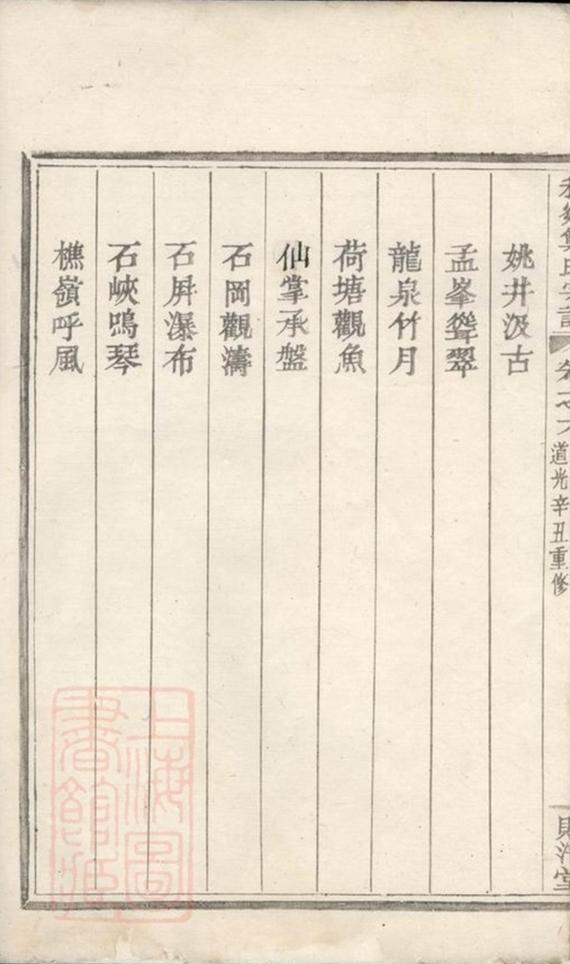 道光辛丑重修
姚井汲古
孟峯聳翠
龍泉竹月
荷塘觀魚
仙掌承盤
石岡觀濤
石屛瀑布
石峽鳴琴
樵嶺呼風
上海圖
書館藏